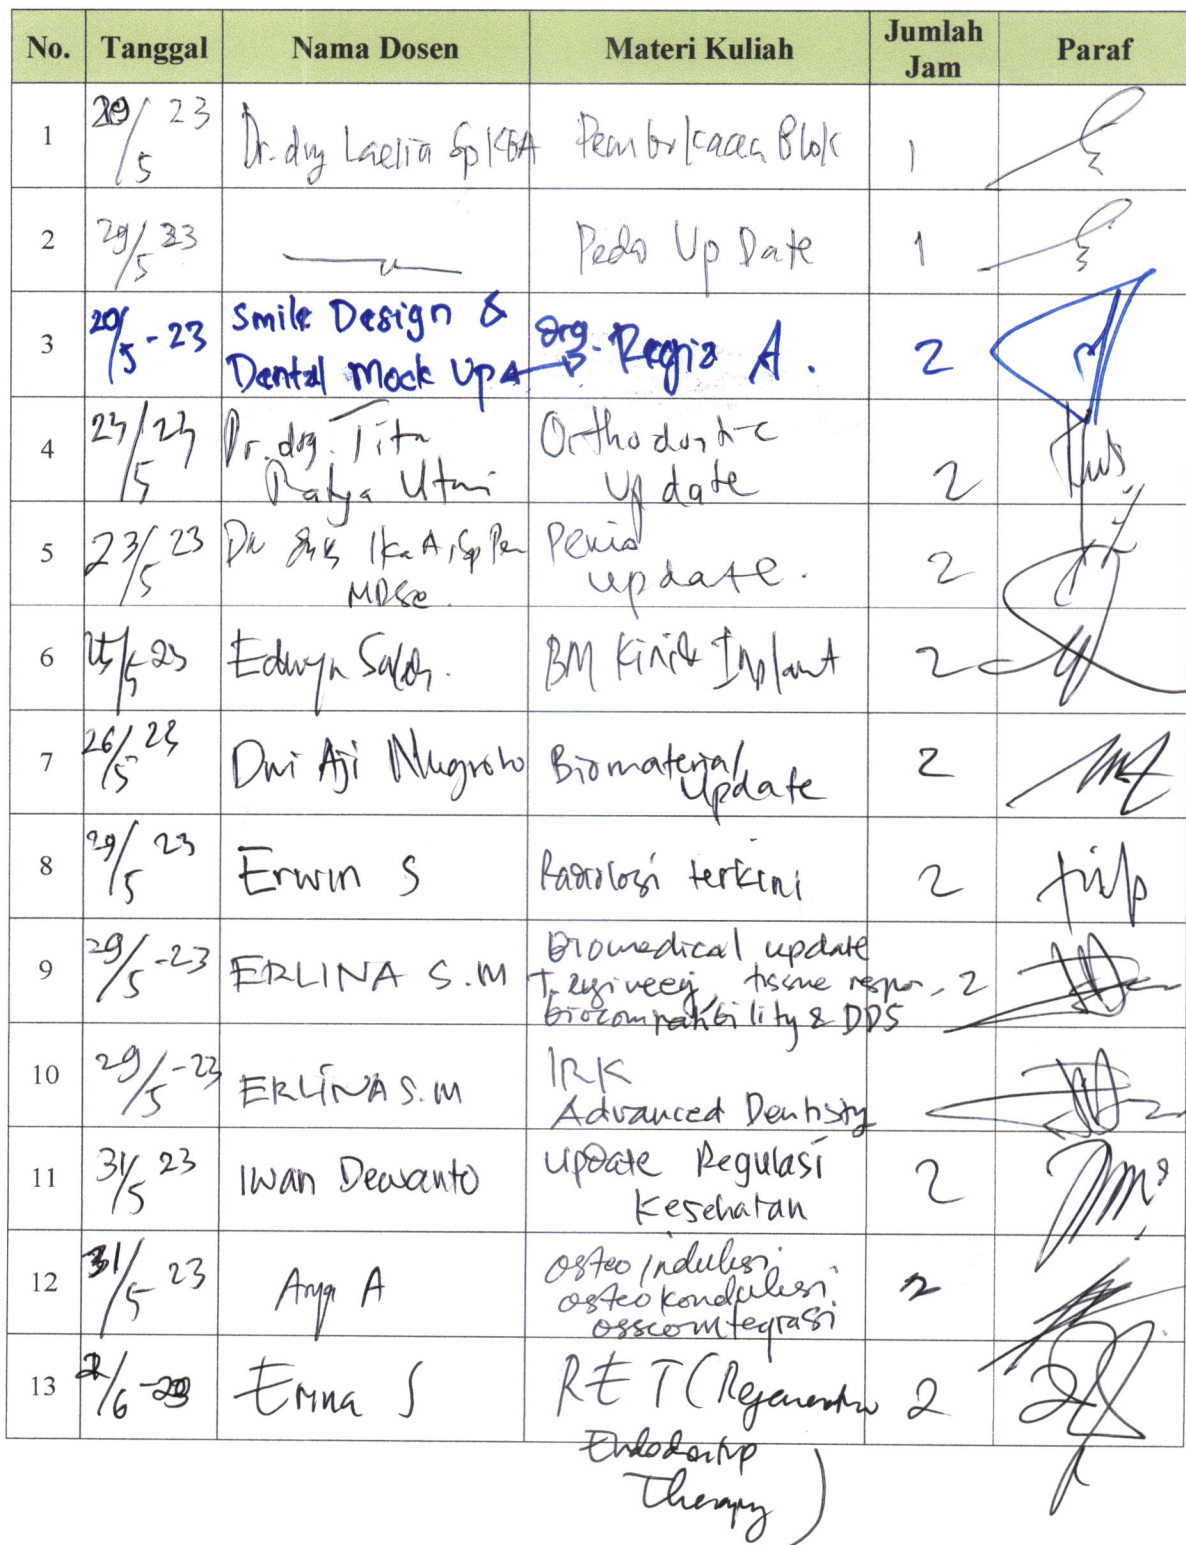 No. Tanggal Nama Dosen Materi Kuliah Jumlah Jam Paraf
1 29/5 23 Dr. drg Laelia Sp KGA Pembukaan Blok 1
2 29/5 23 Pedo Up Date 1
3 /5 - 23 Smile Design &
Dental Mock Up drg. Regia A. 2
4 /5 Dr. drg. Tita
Ratya Utami
Orthodontic
Update 2
5 23/5 23 Ika A, Sp Per
MDSc.
Perio
update. 2
6 /5 23 Edwyn Saleh. BM Kinik Implant 2
7 26/5 23 Dwi Aji Nugroho Biomaterial
Update 2
8 29/5 23 Erwin S Radiologi terkini 2
9 29/5 -23 ERLINA S.M Biomedical update
tissue respon, 2
biocompatibility & DDS
10 29/5 -23 ERLINA S.M IRK
Advanced Dentistry
11 31/5 23 Iwan Dewanto Update Regulasi
Kesehatan 2
12 31/5 23 Arya A osteoinduksi
osteokonduksi
osseointegrasi 2
13 /6 Erma S RET (Regenerative 2
Endodontic
Therapy)